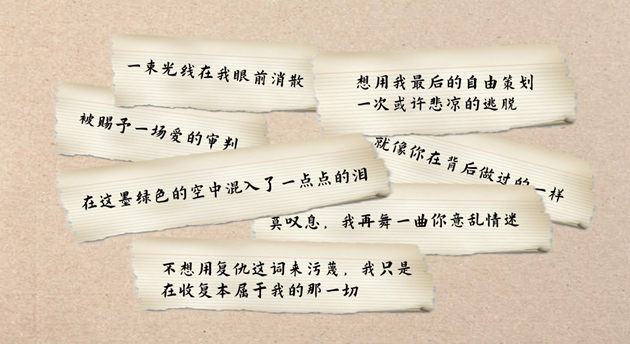 一束光线在我眼前消散
想用我最后的自由策划
一次或许悲凉的逃脱
被赐予一场爱的审判
就像你在背后做过的一样
在这墨绿色的空中混入了一点点的泪
莫叹息，我再舞一曲你意乱情迷
不想用复仇这词来污蔑，我只是
在收复本属于我的那一切